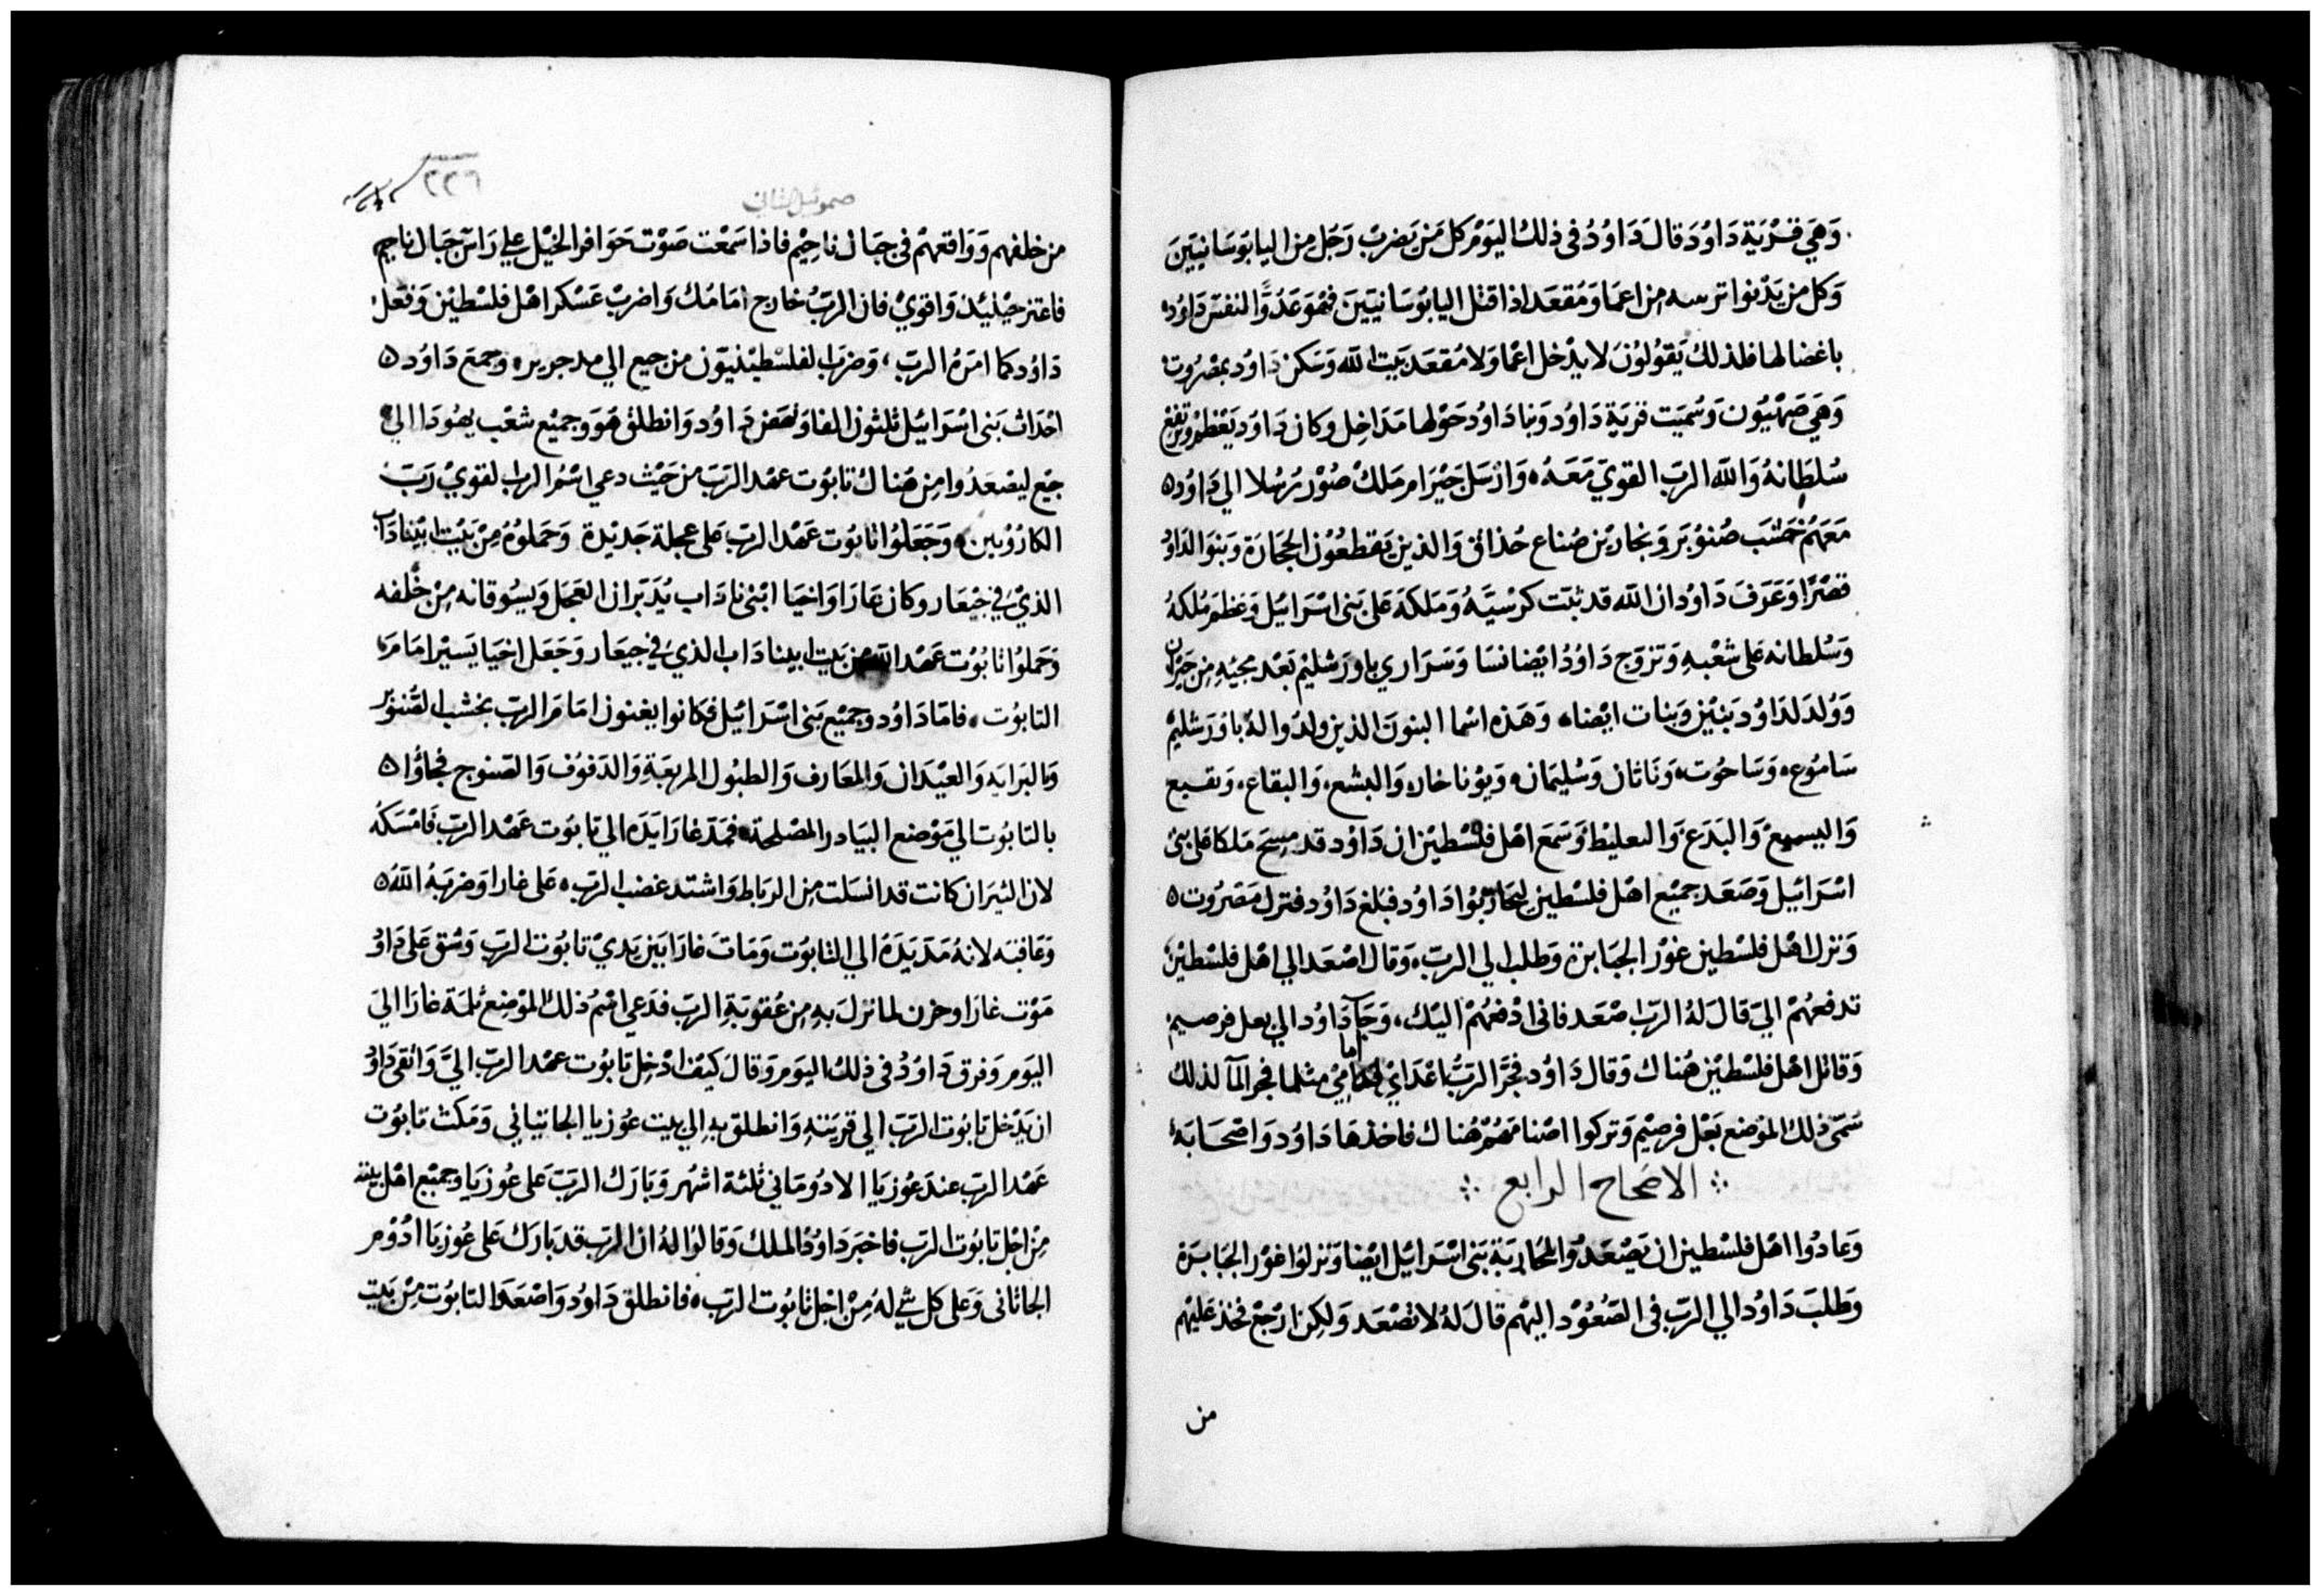 وَهيَ قرْيَة دَاوُد قالَ دَاوُدُ في ذلكَ اليَوْمر كل مَن يَضربْ رَجَل من اليابوسَانييَن
وَكل من يَدْنوا ترسه من اعمَا وَمُقعَد اذا قتل اليابُوسَانييَن فهُوَ عَدُوَّا لنفسَ دَاوُد
باغضا لها فلذلك يَقوُلوُنَ لا يدْخل اعْما وَلا مُقعَد بَيت الله وَسَكن دَاوُد بمصْرُوت
وَهيَ صَهْيُون وَسُميَت قريَة دَاوُد وَبنا دَاوُد حَوْلها مَدَاخِل وكان دَاوُد يَعْظمْ وَيرتفعْ
سُلطَانهُ وَالله الرَبّ القويّ مَعَهُ وَارْسَل حَيْرَامر مَلكْ صُوْر رُسُلا الي دَاوُد
مَعَهُمْ خشَب صُنوُبَر وَنجاريْن صُناع حُذاق وَالذين يَقطعُوْن الحجَارَة وَبنوَا لدَاوُ
قصْرًا وَعَرَفَ دَاوُد ان الله قد ثبّت كرْسيَّهُ وَمَلكهُ عَلى بَني اسْرَائيل وَعَظمَ مُلكهُ
وَسُلطانه عَلى شعْبهِ وَتزوَج دَاوُدُ ايْضا نسَا وَسَرَاري باورَشليْم بَعْد مجيْهِ من حَبرَان
وَوُلدَ لدَاوُد بَنيْن وَبنات ايْضا وَهَذه اسْما البنونَ الذين ولدُوا لهُ باوُرَشليْم
سَامُوع وَسَاحُوت وَنَاتان وَسُليمَان وَيوْناخار وَاليشع وَالبقاع وَنفسع
وَاليسميعْ وَاليَدَع وَالىعليْط وَسَمَع اهْل فلسْطيْن ان دَاوُد قد مِسحَ مَلكا عَلى بَني
اسْرَائيل وَصَعَد جميْع اهْل فلسْطين ليحَاربُوا دَاوُد فبَلغ دَاوُد فنزل مَصْرُوت
وَنزل اهْل فلسْطين غوْر الجَبَابرة وَطلبَ الي الربّ وَقال اصْعَد الي اهْل فلسْطين
تدفعَهُمْ اليّ قالَ لهُ الربّ اصْعَد فاني ادْفعُهُمْ اليْك وَجَا دَاوُد الي بعل فرصيم
وَقاتل اهْل فلسْطيْن هُناك وَقال دَاوُد فجَّر الربُّ اعْدَايْ امامي مثلما فجر المآ لذلك
سَمّى ذلك الموْضع بَعْل فرصيْم وَتركوا اصْنامَهُمْ هُناك فاخذهَا دَاوُد وَاصْحَابَه
الاصَحَاح الرابع
وَعادُوا اهْل فلسْطين ان يَصْعَدُوا لمحَاربَة بَني اسْرَائيل ايْضا وَنزلوُا غوْر الجَبَابَرة
وَطلبَ دَاوُد الي الربّ في الصُعُوْد اليْهم قالَ لهُ لا تصْعَد وَلكن ارْجعْ فخذ عَليْهم
من
٢٢٦
صموئيل الثاني
من خلفهم وَوَاقعهُمْ في جبَال ناحِيْم فاذا سَمعْت صَوْت حَوَافر الخيْل علي رَاسَ جَبَال ناحيم
فاعتز حيْنيْذ وَاقويْ فان الربّ خارج امَامُك وَاضربْ عَسْكر اهْل فلسْطيْن وَفعَل
دَاوُد كما امَرهُ الربّ وَضرَب الفلسْطيْنيّون من جبع الي مدجرير وَجمعَ دَاوُد
احْدَاث بَني اسْرَائيل ثلثون الفا وَنهَض دَاوُد وَانطلق هُوَ وَجميْع شعْب يهُودَا الي
جبع ليصْعَدُوا من هُناك تابُوْت عهْد الرّبّ من حَيْث دعي اسْمُ الرب القويْ رَبّ
الكارُوْبين وَجَعَلوُا تابُوْت عَهْد الربّ عَلى عجلة جَديْدة وَحَملوُهُ مِنْ بَيْت ابيْنادَاب
الذيْ في جيْعَار وكان عَازا وَاخيَا ابْني نادَاب يُدَبّران العَجَل وَيسُوقانه مِنْ خلفه
وَحَملوُا تابُوُت عَهْد الله من بَيت ابينادَاب الذيْ في جيعَار وَجَعَل اخيَا يَسيْر امَامَر
التابوُت فامّا دَاوُد وَجميْع بَني اسْرَائيْل فكانوا يغنون امَامَ الربّ بخشب الصُنوْبر
وَبالبَرابه وَالعيْدَان وَالمعَارف وَالطبُول المربعَةِ وَالدَفوُف وَالصَنوج فجاؤُا
بالتابُوت الي مَوْضع البيَادر المصْلحة فمَدّ غازا يَدَه الي تابوُت عَهْد الربّ فَامْسَكهُ
لان الثيرَان كانت قد انسَلت من الربَاط وَاشتد غضب الربّ عَلى غارا وَضربَهُ اللهُ
وَعَاقبَه لانهُ مَدَ يَدَهُ الي التابُوت وَمَات غازا بَين يَديْ تابُوت الربّ وَشق عَلى دَاوُ
مَوْت غازا وحزن لما نزلَ بهِ من عُقوبَةِ الربّ فدَعي اسْمُ ذلك الموْضِع ثلمَة غازا الي
اليَوم وَفرق دَاوُدُ في ذلك اليَوم وَقالَ كيْف ادْخل تابُوت عهْد الربّ اليَّ وَاتقى دَاوُ
ان يَدْخل تابُوت الربّ الي قريَتهِ وَانطلق به الي بيت عوُزيا الجاتياني وَمَكث تابوُت
عَهْد الربّ عند عُوزيا الادُومَاني ثلثة اشهُر وَبَارَك الربّ عَلى عُوزيَا وجميْع اهْل بيته
مِنْ اجْل تابُوت الربّ فاخبَر دَاوُدُ الملك وَقالوُا لهُ ان الربّ قد بَارَك عَلى عُوزيَا ادْوْمر
الجاثانى وَعَلى كل شي لهُ مِنْ اجْل تابُوت الربّ فانطلق دَاوُد وَاصْعَدَ التابُوت مِنْ بَيت